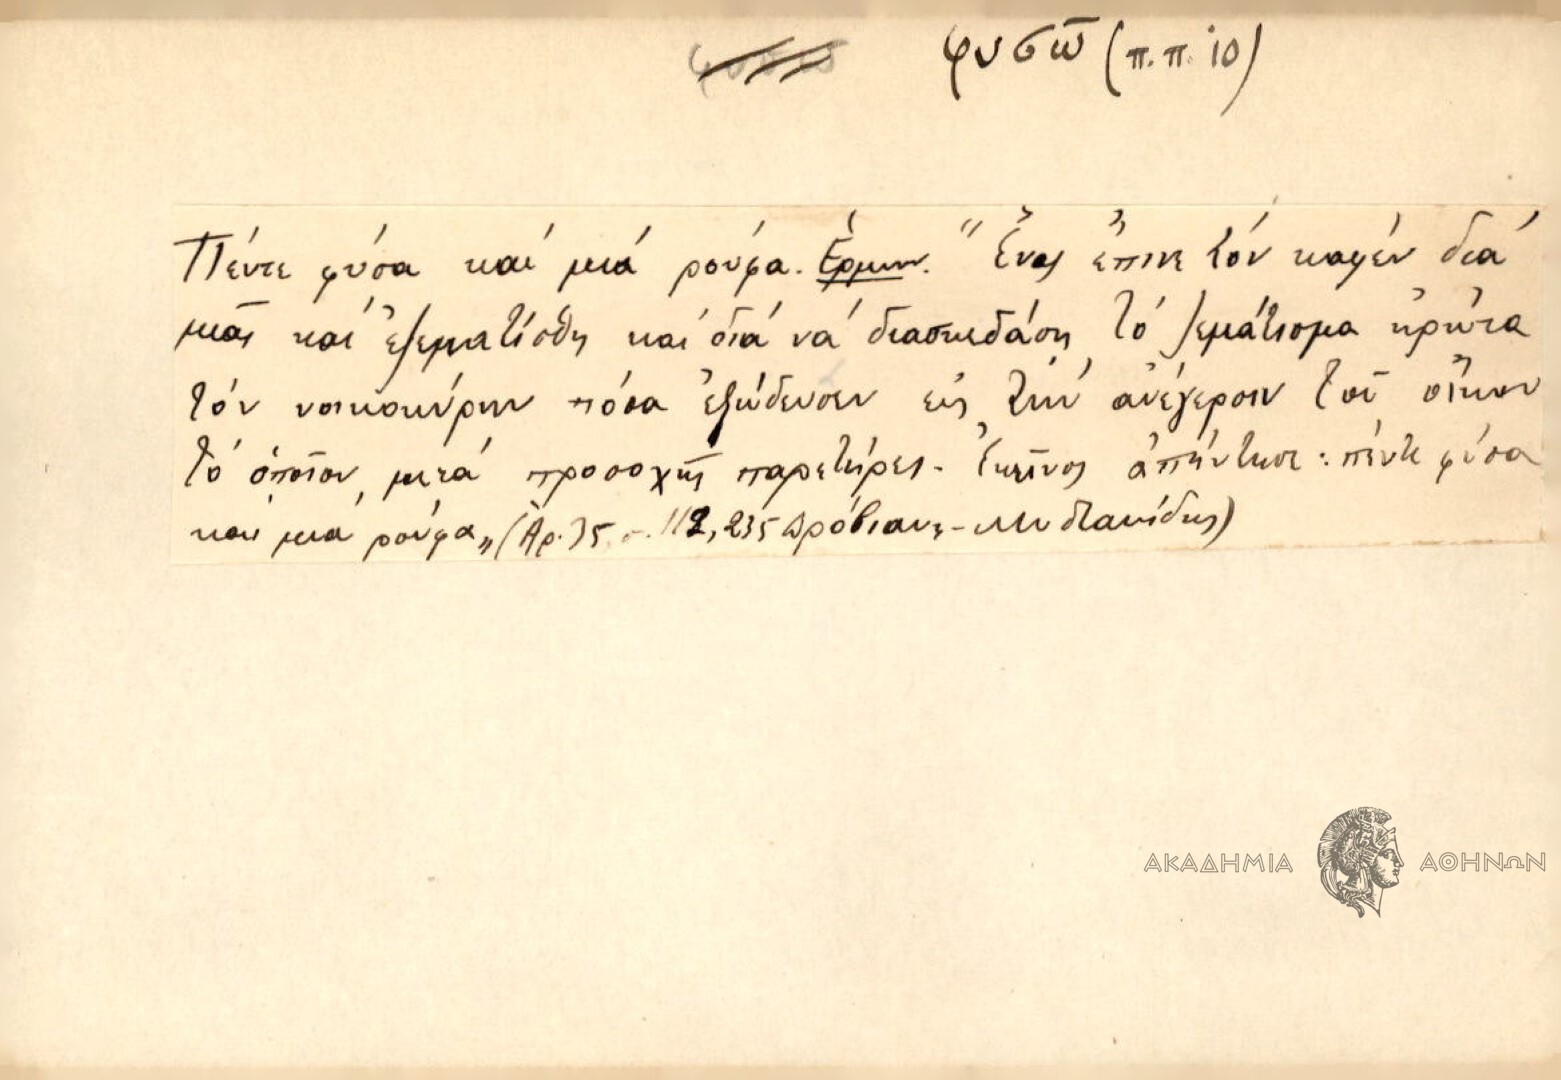 φυσῶ (π.π. 10)
Πέντε φύσα καί μιά ρούφα. Ἑρμην. "Ἕνας ἔπινε τόν καφέν διά
μιᾶς καί ἐζεματίσθη καί διά νά διασκεδάση τό ζεμάτισμα ἠρώτα
τόν νοικοκύρην πόσα ἐξώδευσεν εἰς τήν ἀνέγερσιν τοῦ οἴκου
τό ὁποῖον μετά προσοχῆς παρετήρει. Ἐκεῖνος ἀπήντησε: πέντε φύσα
καί μιά ρούφα" (Ἀρ. 75 σ. 112, 235 Δρόβιανη -
ΑΚΑΔΗΜΙΑ ΑΘΗΝΩΝ